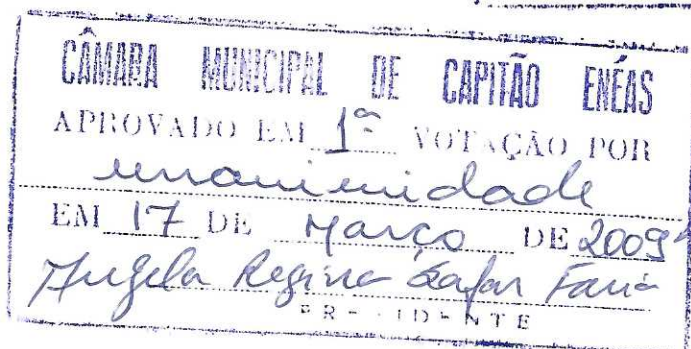 CÂMARA MUNICIPAL DE CAPITÃO ENÉAS
APROVADO EM 1ª VOTAÇÃO POR
unanimidade
EM 17 DE Março DE 2009
Angela Regina Faria
PRESIDENTE